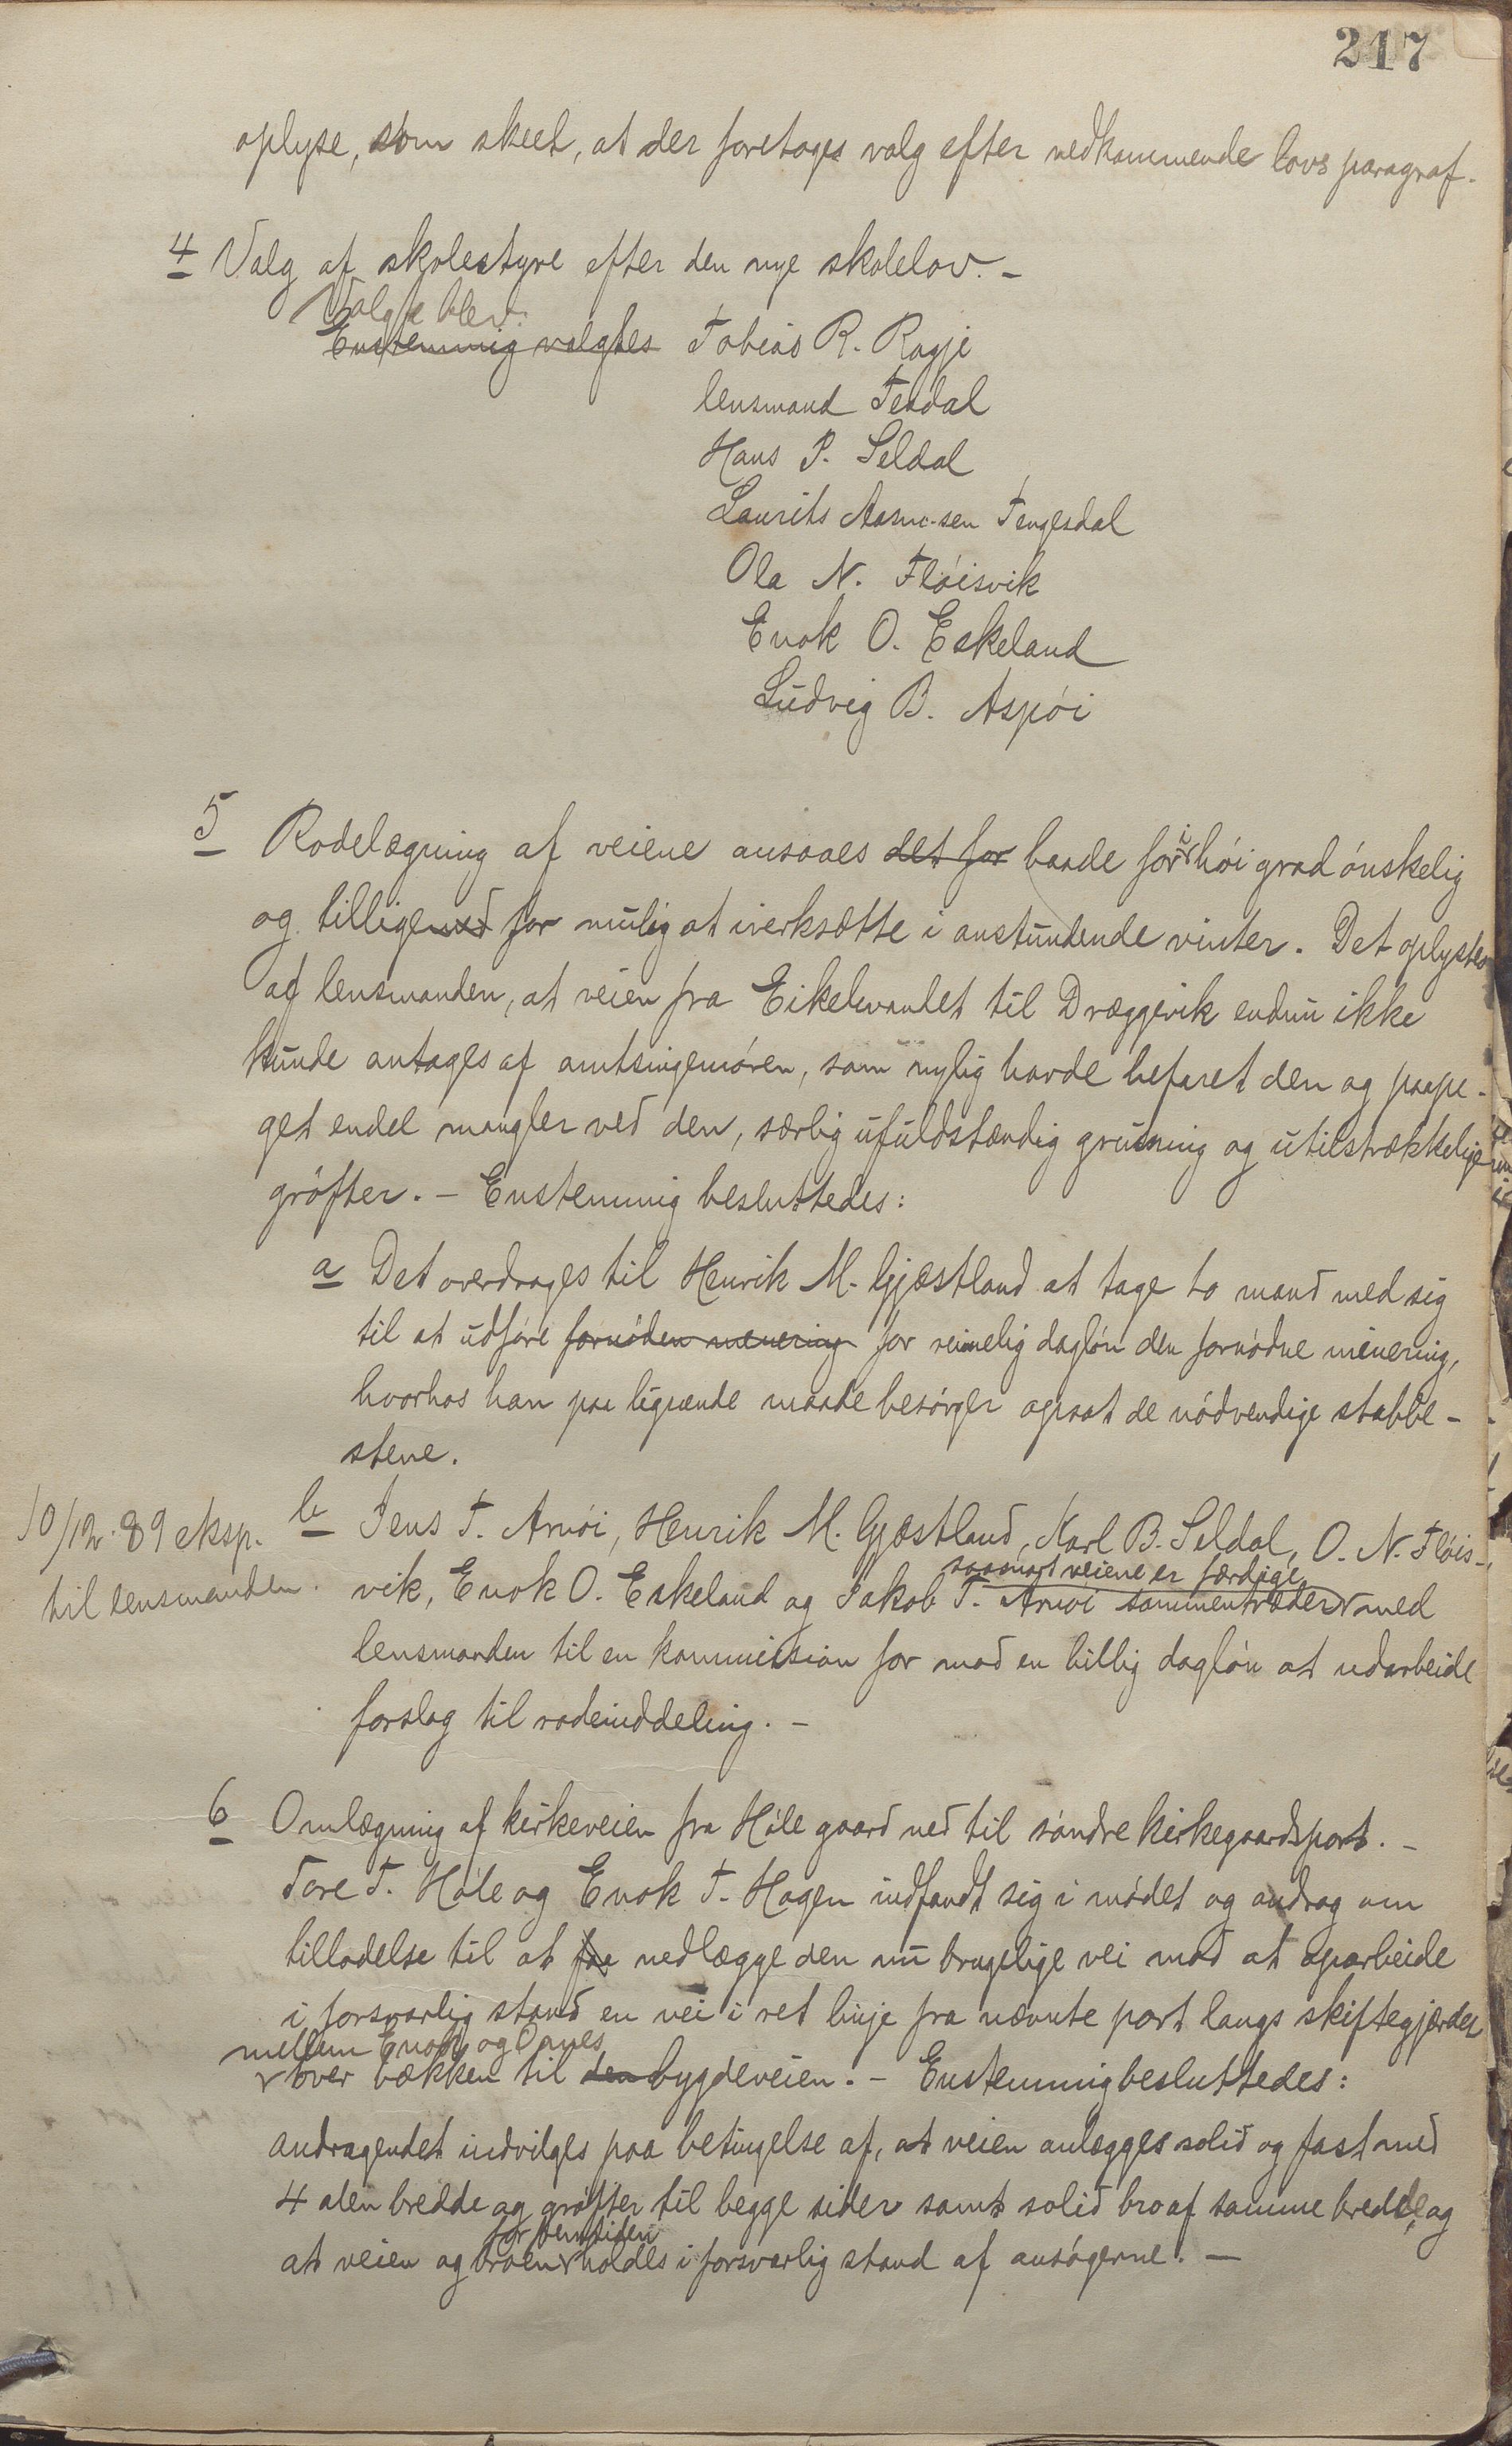 217
oplyse, som skeet, at der foretages valg efter vedkommende lovs paragraf.
4 Valg af skolestyre efter den nye skolelov. –
Valgte blev:
Enstemmig valgtes Tobias R. Ragje
lensmand Tesdal
Hans P. Seldal
Laurits Aasmr.sen Tengesdal
Ola N. Flóisvik
Enok O. Eskeland
Ludvig B. Aspói
5 Rodelægning af veiene ansaaes det for baade for i hói grad ónskelig
og tilligemed for mulig at iverksætte i anstundende vinter. Det oplystes
af lensmanden, at veien fra Eikelivandet til Dræggevik endnu ikke
kunde antages af amtsingeniören, som nylig havde befaret den og paape-
get endel mangler ved den, særlig ufuldstændig grusning og utilstrækkelige
gröfter. – Enstemmig besluttedes:
a Det overdrages til Henrik M. Gjæstland at tage to mand med sig
til at udföre fornóden menering for reimelig daglón den fornódne minering,
hvorhos han paa lignende maade besórger opsat de nódvendige stabbe-
stene.
10/12. 89 eksp.
til lensmanden.
b Jens T. Arnói, Henrik M. Gjæstland, Karl B. Seldal, O. N. Flóis-
saasnart veiene er færdige
vik, Enok O. Eskeland og Jakob T. Arnói sammentræder med
lensmanden til en kommission for mod en billig daglón at udarbeide
forslag til rodeinddeling. –
6 Omlægning af kirkeveien fra Hóle gaard ned til söndre kirkegaardsport. –
Tore T. Hóle og Enok T. Hagen indfandt sig i módet og androg om
tilladelse til at faa nedlægge den nu brugelige vei mod at oparbeide
i forsvarlig stand en vei i ret linje fra nævnte port langs skiftegjærdet
mellem Enoks og Ommes
over bækken til den bygdeveien. – Enstemmig besluttedes:
andragendet indvilges paa betingelse af, at veien anlægges solid og fast med
4 alen bredde og gröfter til begge sider samt solid bro af samme bredde, og
for fremtiden
at veien og broen holdes i forsvarlig stand af ansögerne. –